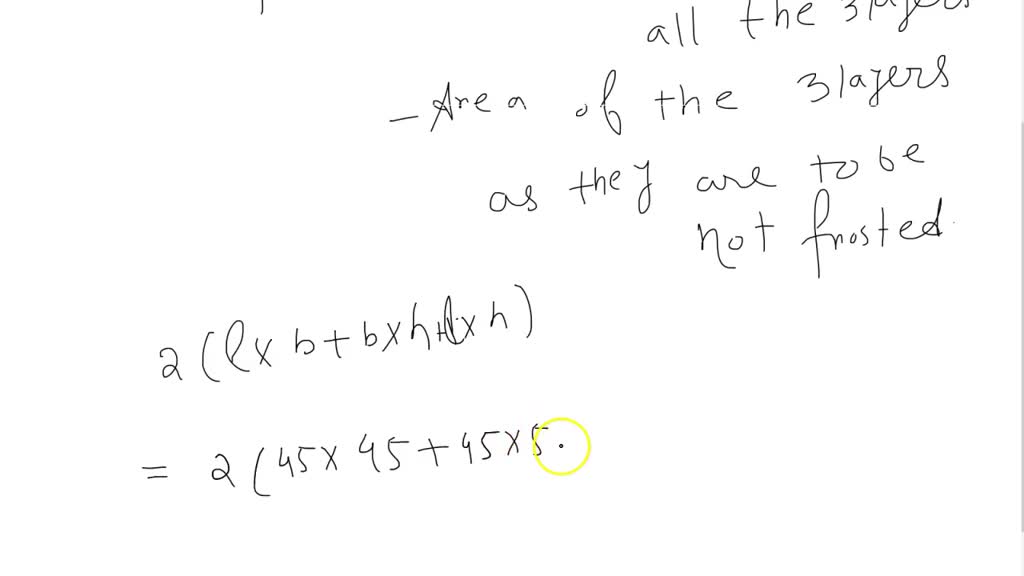 all the 3 layers
- Area of the 3 layers
as they are to be
not frosted.
2 (l x b + b x h + l x h)
= 2 (45 x 45 + 45 x 5